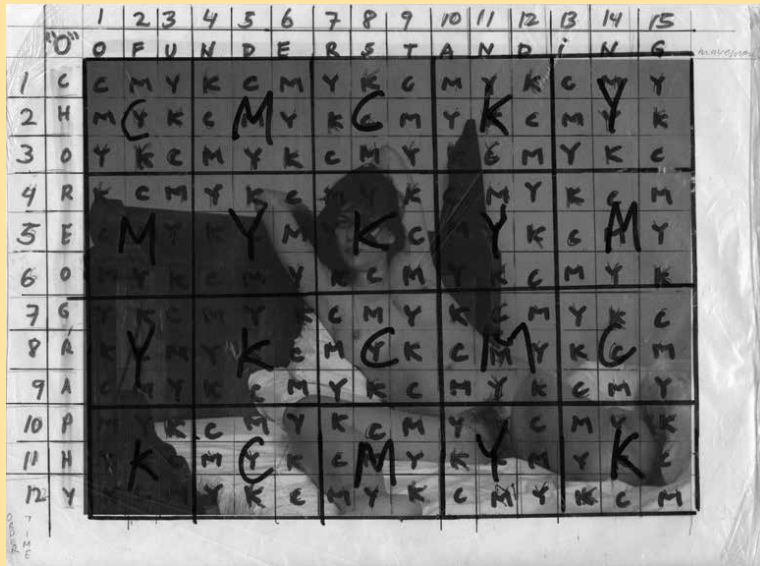 1 2 3 4 5 6 7 8 9 10 11 12 13 14 15
"O" O F U N D E R S T A N D i N G
1 C C M Y K C M Y K C M Y K C M Y
2 H M Y K C M Y K C M Y K C M Y K
C M C K Y
3 O Y K C M Y K C M Y K C M Y K C
4 R K C M Y K C M Y K C M Y K C M
5 E C M Y K C M Y K C M Y K C M Y
M Y K Y M
6 O M Y K C M Y K C M Y K C M Y K
7 G Y K C M Y K C M Y K C M Y K C
8 R K C M Y K C M Y K C M Y K C M
Y K C M C
9 A C M Y K C M Y K C M Y K C M Y
10 P M Y K C M Y K C M Y K C M Y K
11 H Y K C M Y K C M Y K C M Y K C
K C M Y K
12 Y K C M Y K C M Y K C M Y K C M
ORDER TIME